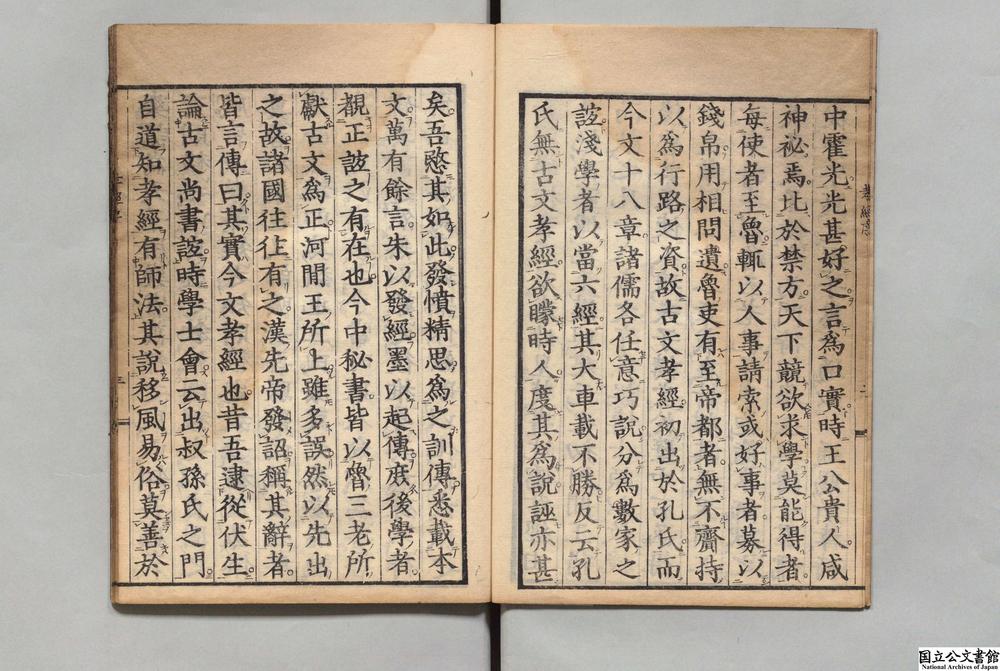 中霍光光甚好之言爲口實時王公貴人咸
神祕焉比於禁方天下競欲求學莫能得者
每使者至魯輒以人事請索或好事者募以
錢帛用相問遺魯吏有至帝都者無不齎持
以爲行路之資故古文孝經初出於孔氏而
今文十八章諸儒各任意巧說分爲數家之
誼淺學者以當六經其大車載不勝反云孔
氏無古文孝經欲矇時人度其爲說誣亦甚
矣吾愍其如此發憤精思爲之訓傳悉載本
文萬有餘言朱以發經墨以起傳庶後學者
覩正誼之有在也今中秘書皆以魯三老所
獻古文爲正河閒王所上雖多誤然以先出
之故諸國往往有之漢先帝發詔稱其辭者
皆言傳曰其實今文孝經也昔吾逮從伏生
論古文尚書誼時學士會云出叔孫氏之門
自道知孝經有師法其說移風易俗莫善於
三
国立公文書館
National Archives of Japan